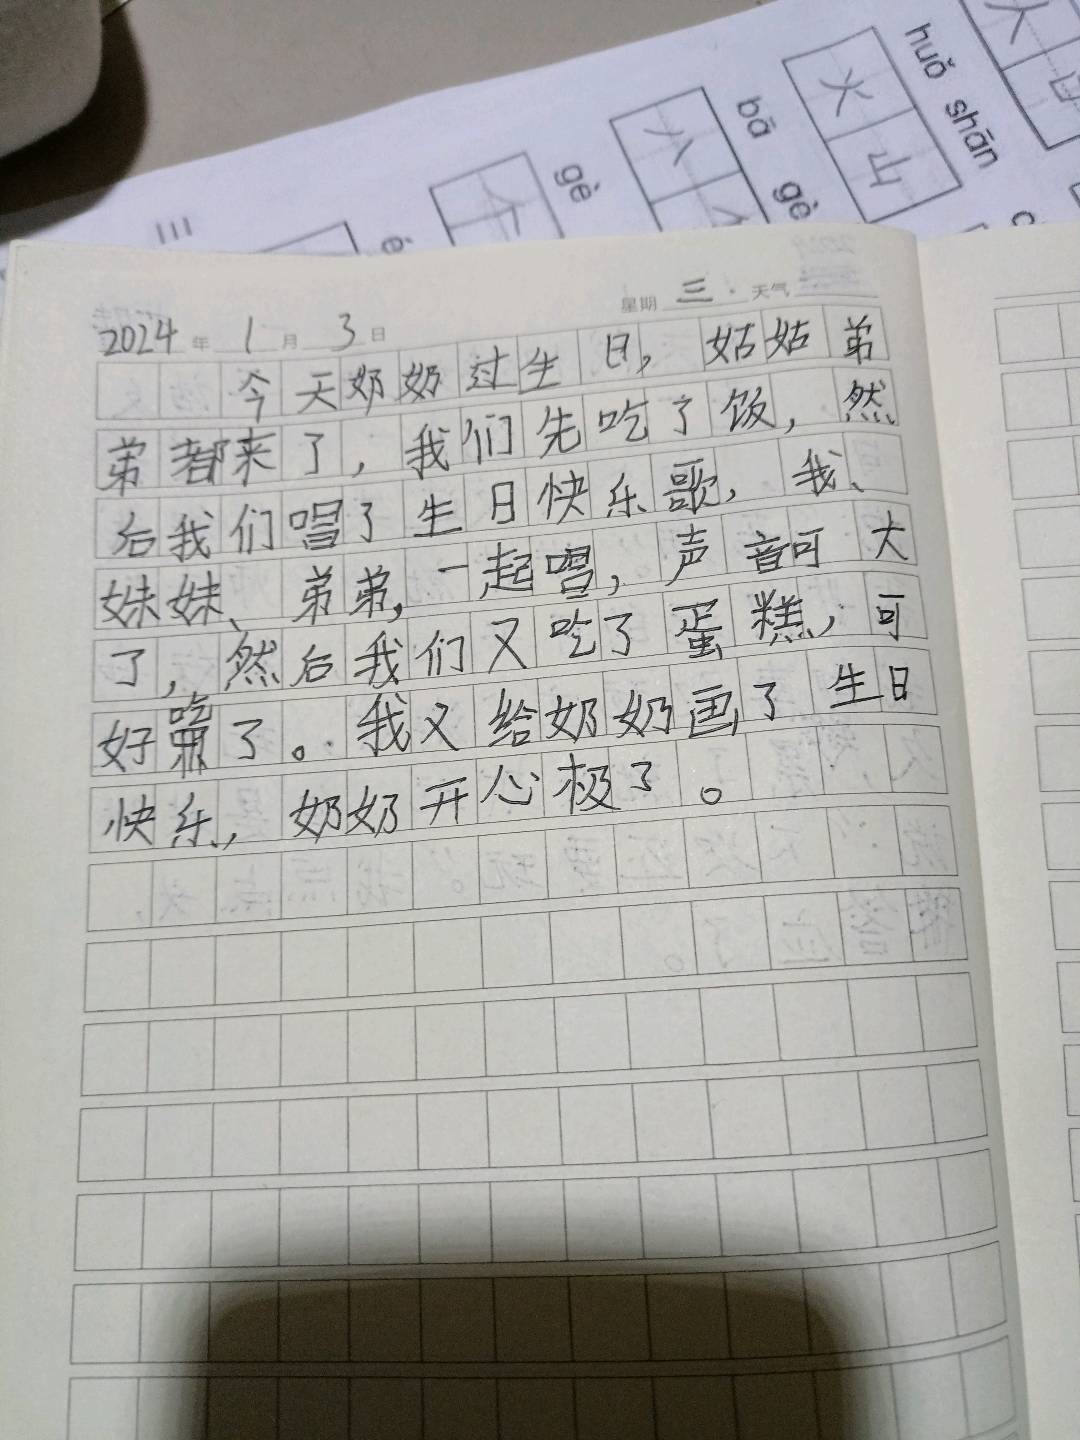 huǒ shān
火山
bā gè
八
gè
个
三
2024年1月3日 星期三 天气
今天奶奶过生日，姑姑弟
弟都来了，我们先吃了饭，然
后我们唱了生日快乐歌，我、
妹妹、弟弟，一起唱，声音可大
了，然后我们又吃了蛋糕，可
好吃了。我又给奶奶画了生日
快乐，奶奶开心极了。